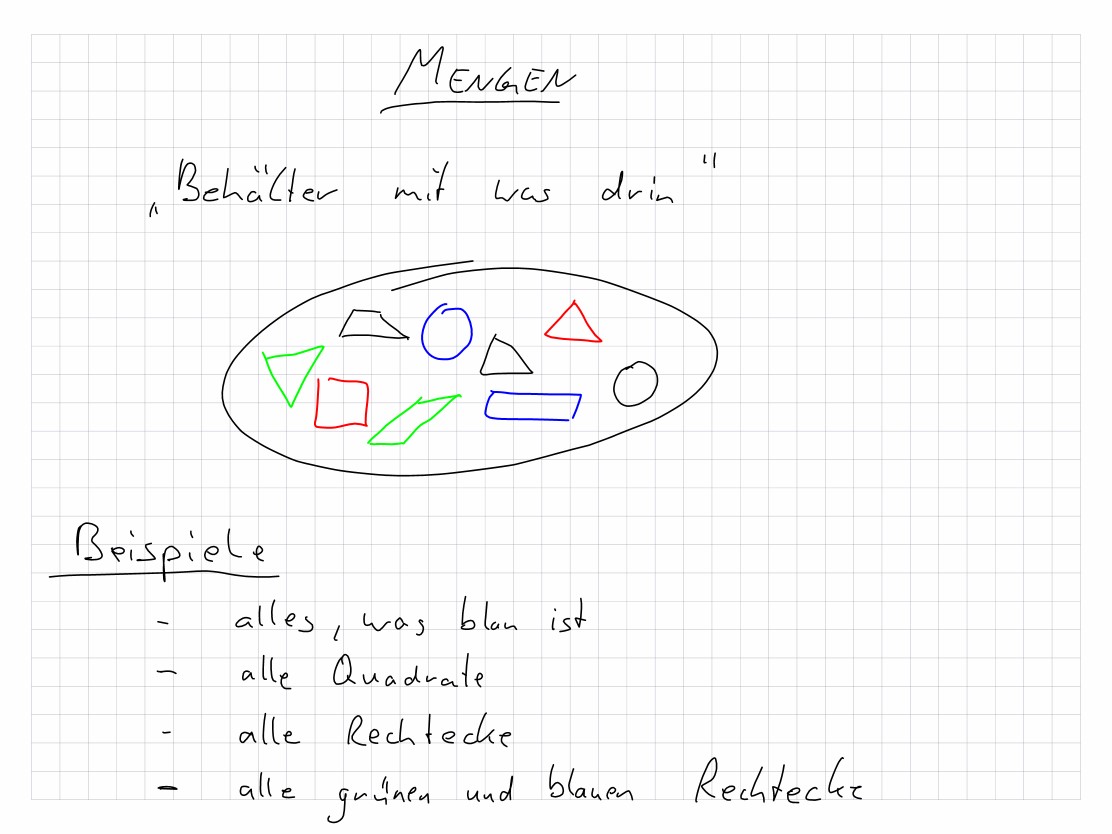 MENGEN
„Behälter mit was drin"
Beispiele
- alles, was blau ist
- alle Quadrate
- alle Rechtecke
- alle grünen und blauen Rechtecke